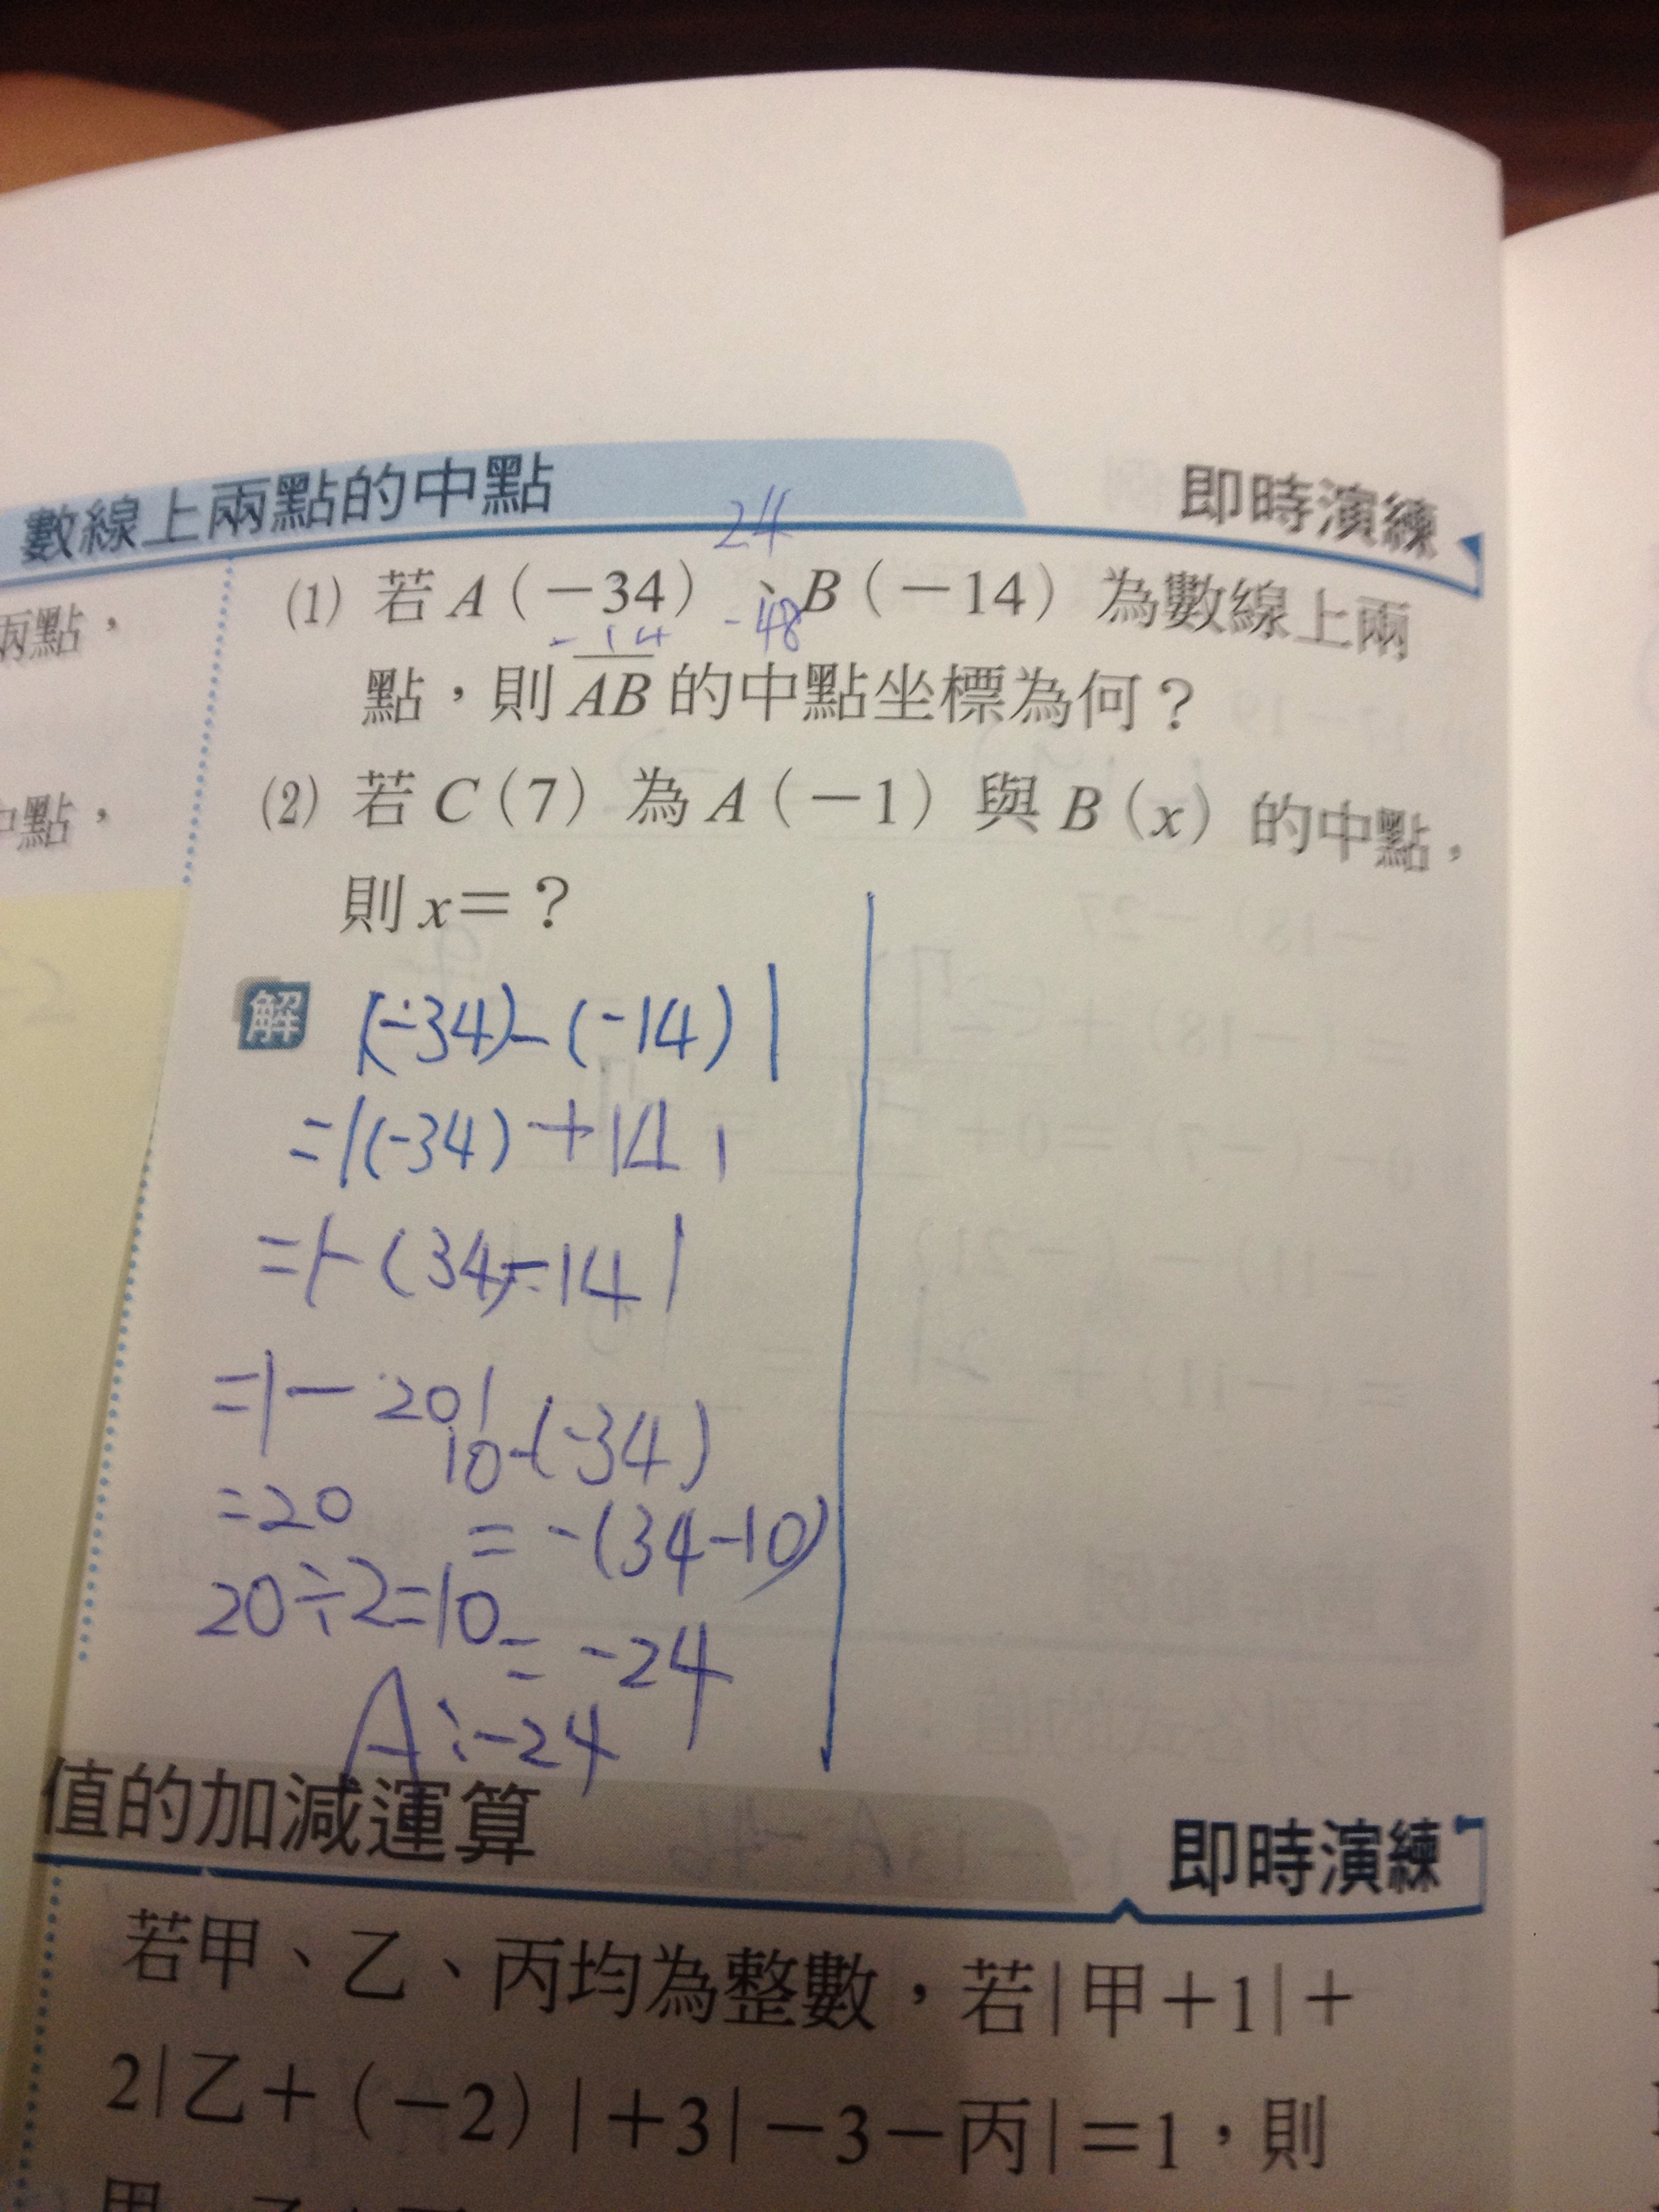 數線上兩點的中點
即時演練
24
兩點，
(1) 若 A（－34）、B（－14）為數線上兩
-14 -48
點，則 AB 的中點坐標為何？
中點，
(2) 若 C（7）為 A（－1）與 B（x）的中點，
則 x＝？
解
|(-34)-(-14)|
=|(-34)+14|
=|-(34-14|
=|-20|
=20
20÷2=10
10-(-34)
=-(34-10)
=-24
A:-24
值的加減運算
即時演練
若甲、乙、丙均為整數，若|甲＋1|＋
2|乙＋（－2）|＋3|－3－丙|＝1，則